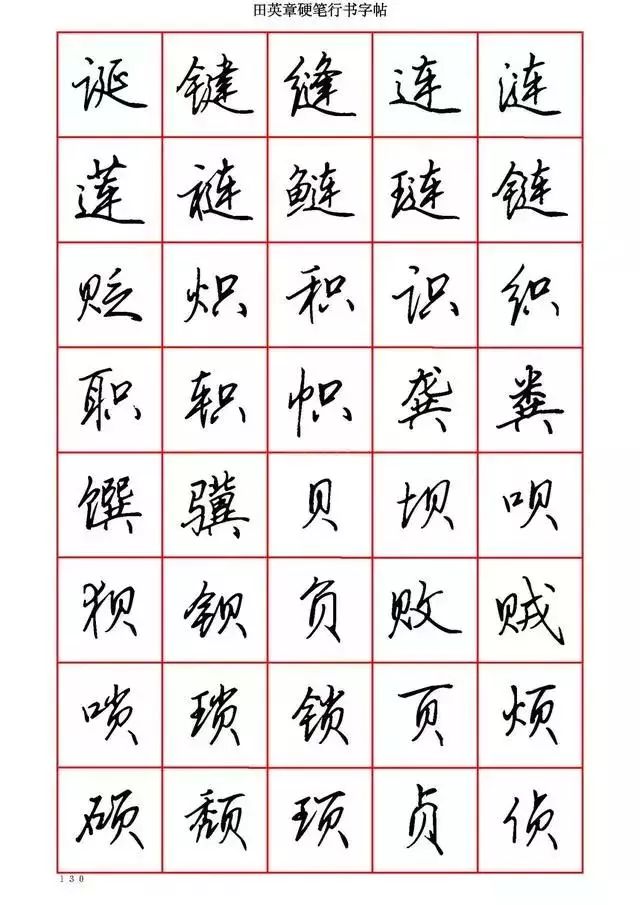 田英章硬笔行书字帖
诞键缝连涟
莲裢鲢琏链
贬炽积识织
职轵帜龚粪
馔骥贝坝呗
狈钡负败贼
唢琐锁页烦
硕颓顼贞侦
130